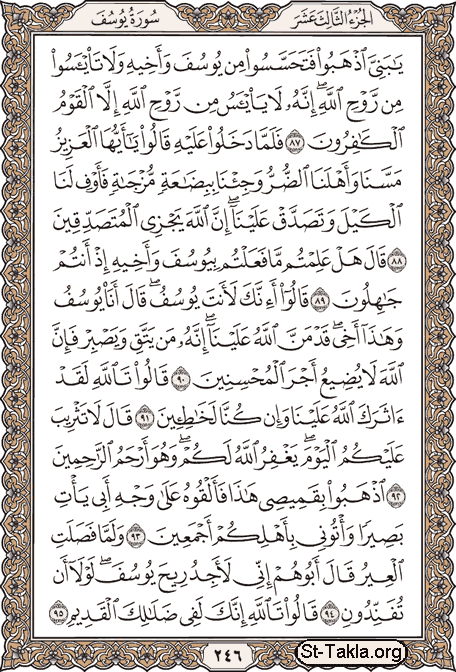 الجزء الثالث عشر
سورة يوسف
يَٰبَنِىَّ ٱذْهَبُوا۟ فَتَحَسَّسُوا۟ مِن يُوسُفَ وَأَخِيهِ وَلَا تَا۟يْـَٔسُوا۟
مِن رَّوْحِ ٱللَّهِ ۖ إِنَّهُۥ لَا يَا۟يْـَٔسُ مِن رَّوْحِ ٱللَّهِ إِلَّا ٱلْقَوْمُ
ٱلْكَٰفِرُونَ ٨٧ فَلَمَّا دَخَلُوا۟ عَلَيْهِ قَالُوا۟ يَٰٓأَيُّهَا ٱلْعَزِيزُ
مَسَّنَا وَأَهْلَنَا ٱلضُّرُّ وَجِئْنَا بِبِضَٰعَةٍ مُّزْجَىٰةٍ فَأَوْفِ لَنَا
ٱلْكَيْلَ وَتَصَدَّقْ عَلَيْنَآ ۖ إِنَّ ٱللَّهَ يَجْزِى ٱلْمُتَصَدِّقِينَ
٨٨ قَالَ هَلْ عَلِمْتُم مَّا فَعَلْتُم بِيُوسُفَ وَأَخِيهِ إِذْ أَنتُمْ
جَٰهِلُونَ ٨٩ قَالُوٓا۟ أَءِنَّكَ لَأَنتَ يُوسُفُ ۖ قَالَ أَنَا۠ يُوسُفُ
وَهَٰذَآ أَخِى ۖ قَدْ مَنَّ ٱللَّهُ عَلَيْنَآ ۖ إِنَّهُۥ مَن يَتَّقِ وَيَصْبِرْ فَإِنَّ
ٱللَّهَ لَا يُضِيعُ أَجْرَ ٱلْمُحْسِنِينَ ٩٠ قَالُوا۟ تَٱللَّهِ لَقَدْ
ءَاثَرَكَ ٱللَّهُ عَلَيْنَا وَإِن كُنَّا لَخَٰطِـِٔينَ ٩١ قَالَ لَا تَثْرِيبَ
عَلَيْكُمُ ٱلْيَوْمَ ۖ يَغْفِرُ ٱللَّهُ لَكُمْ ۖ وَهُوَ أَرْحَمُ ٱلرَّٰحِمِينَ
٩٢ ٱذْهَبُوا۟ بِقَمِيصِى هَٰذَا فَأَلْقُوهُ عَلَىٰ وَجْهِ أَبِى يَأْتِ
بَصِيرًا وَأْتُونِى بِأَهْلِكُمْ أَجْمَعِينَ ٩٣ وَلَمَّا فَصَلَتِ
ٱلْعِيرُ قَالَ أَبُوهُمْ إِنِّى لَأَجِدُ رِيحَ يُوسُفَ ۖ لَوْلَآ أَن
تُفَنِّدُونِ ٩٤ قَالُوا۟ تَٱللَّهِ إِنَّكَ لَفِى ضَلَٰلِكَ ٱلْقَدِيمِ ٩٥
٢٤٦
St-Takla.org